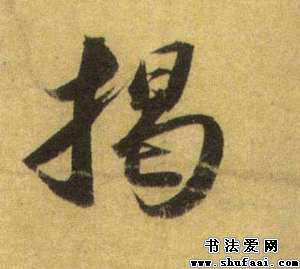 揭
书法爱网
www.shufaai.com